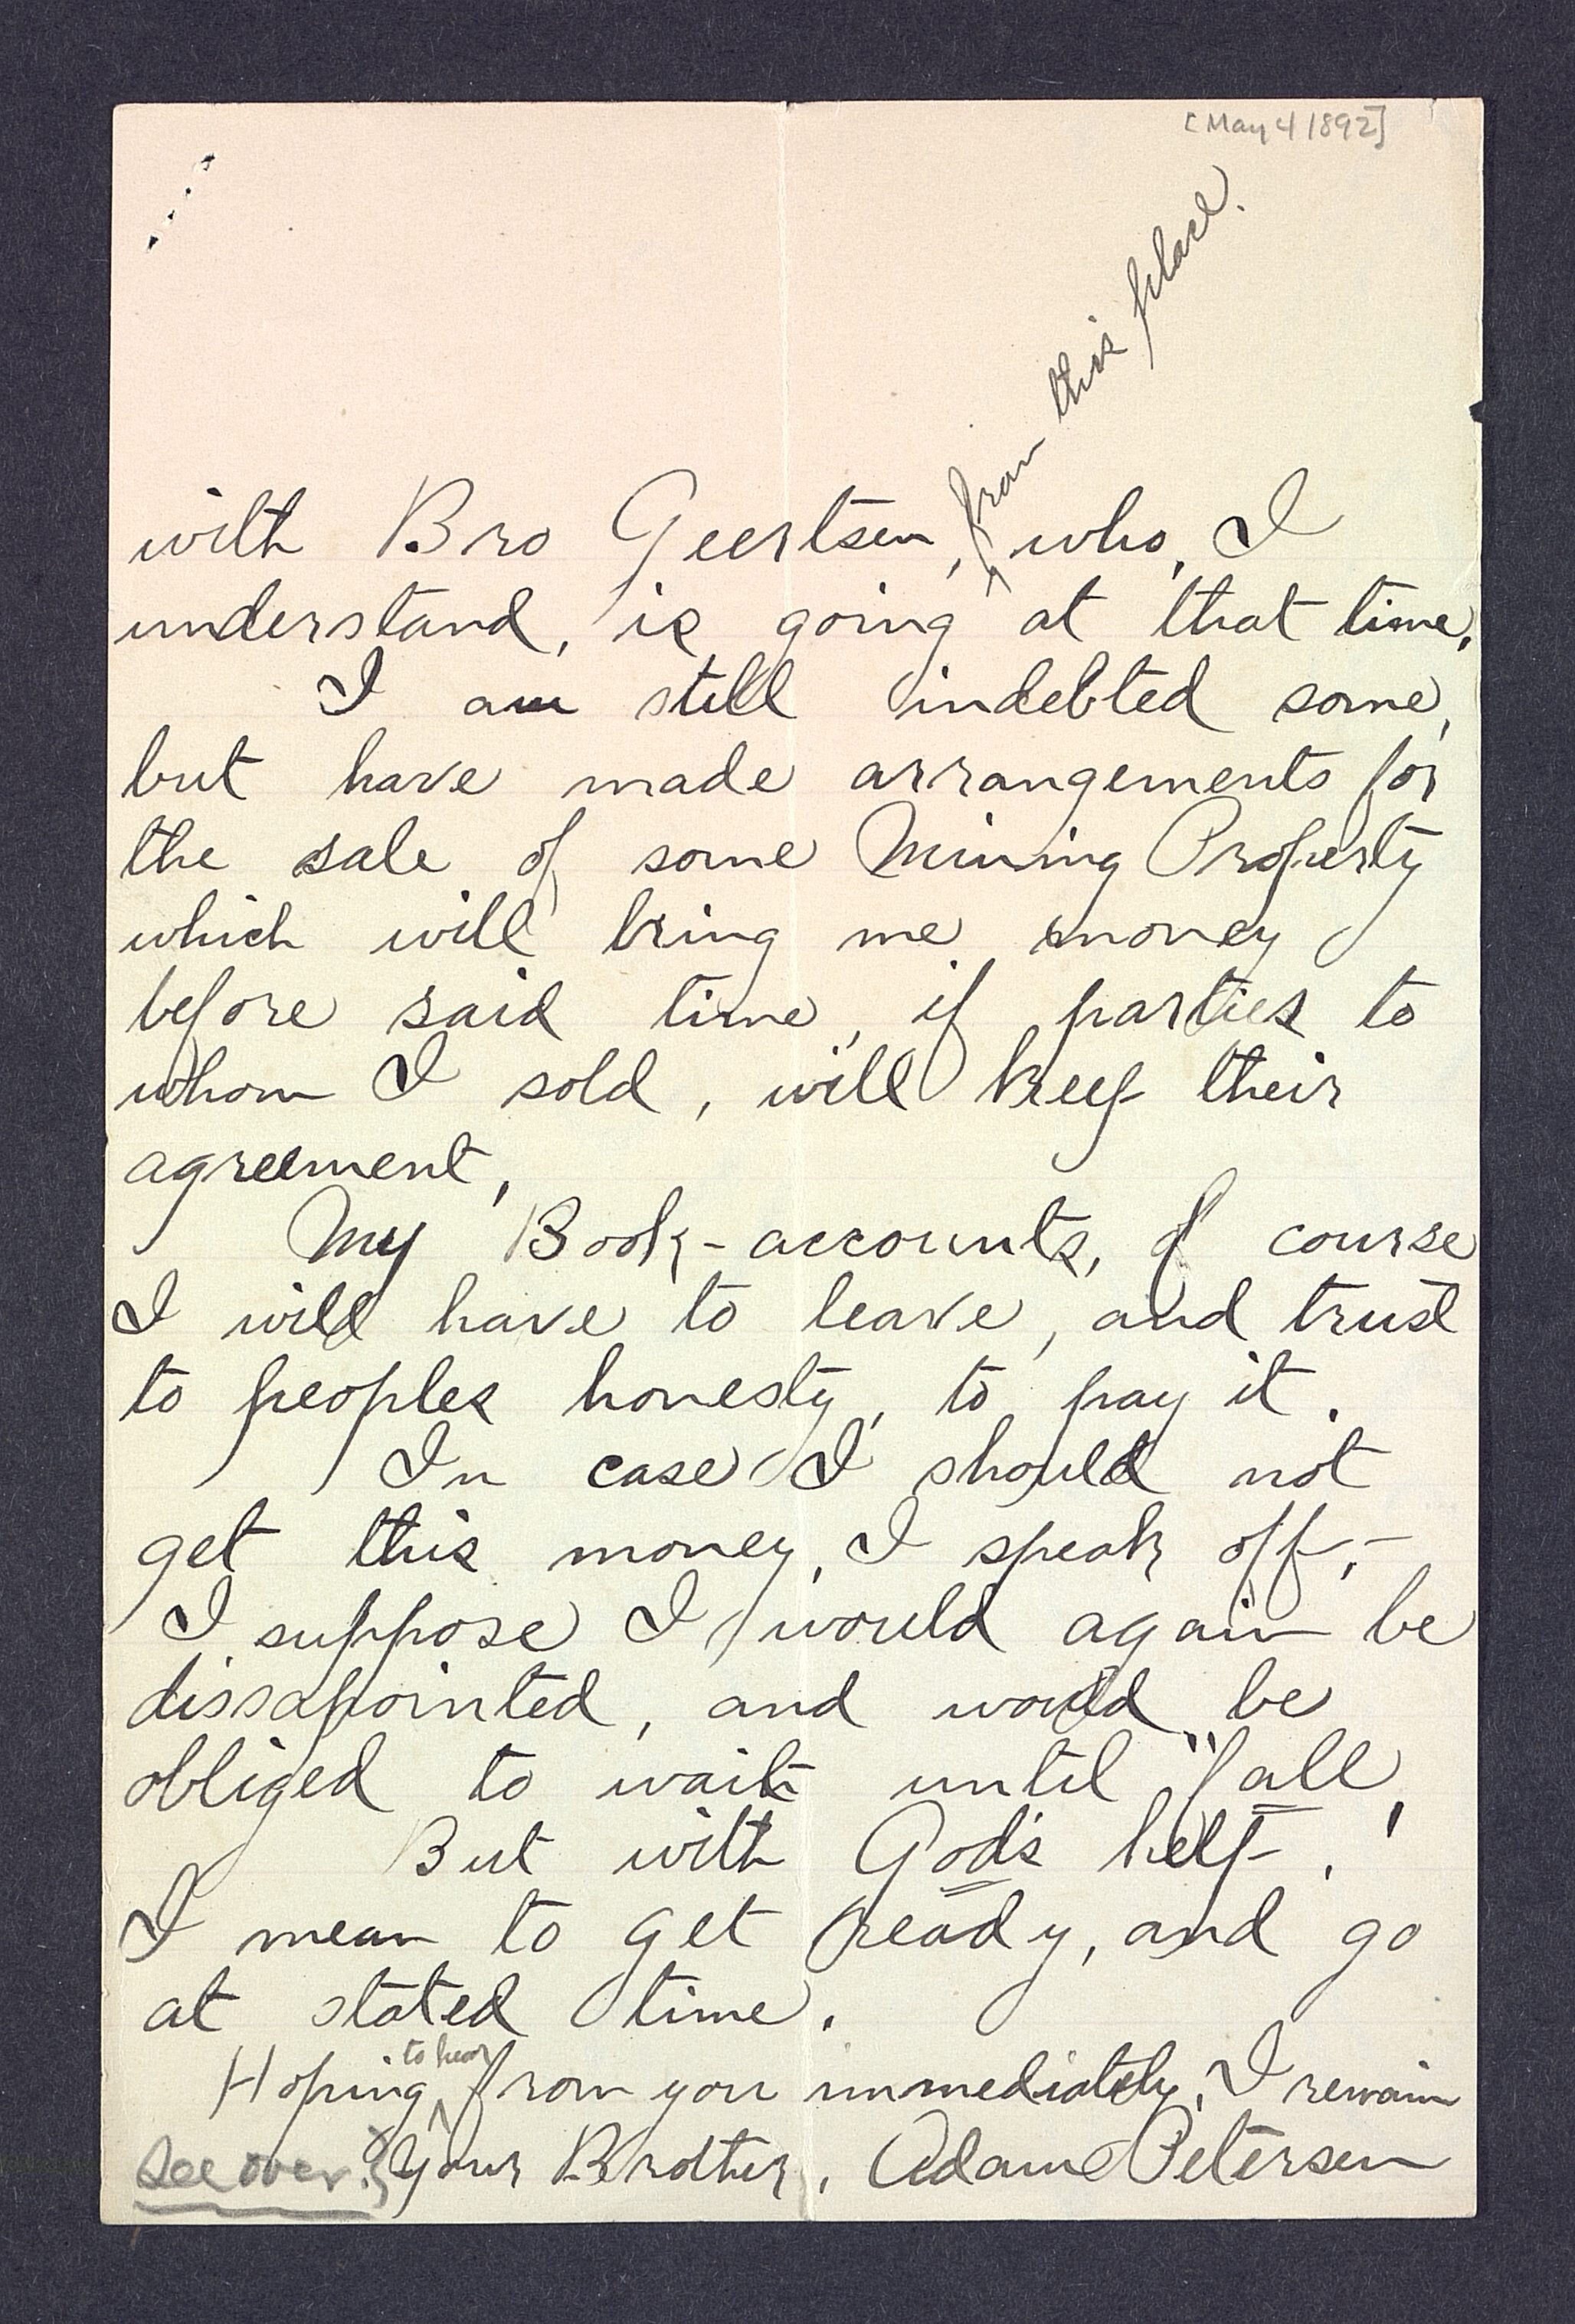 [May 4 1892]
from this place.
with Bro Geertsen, ^ who, I
understand, is going at that time.
I am still indebted some,
but have made arrangements for
the sale of some Mining Property
which will bring me money
before said time, if parties to
whom I sold, will keep their
agreement,
My Book-accounts, of course
I will have to leave, and trust
to peoples honesty, to pay it.
In case I should not
get this money, I speak off,-
I suppose I would again be
dissapointed, and would be
obliged to wait until "fall,
But with God's help,
I mean to get ready, and go
at stated time.
to hear
Hoping ^ from you immediately, I remain
Your Brother, Adam Petersen
See over.